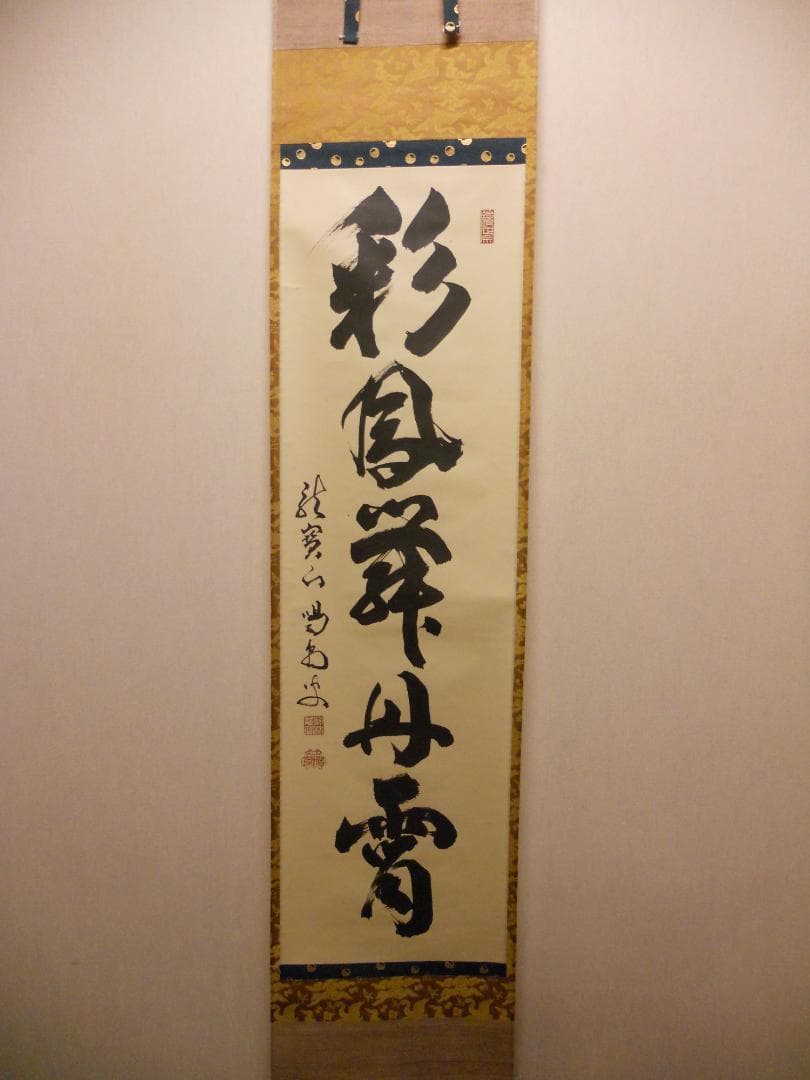 彩鳳舞丹霄
龍寳山